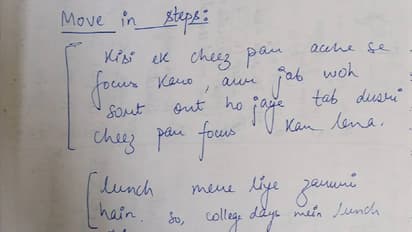 Move in steps:
Kisi ek cheez par acche se
focus karo, aur jab woh
sort out ho jaye tab dusri
cheez par focus kar lena.
lunch mere liye zaruri
hain. so, college days mein lunch